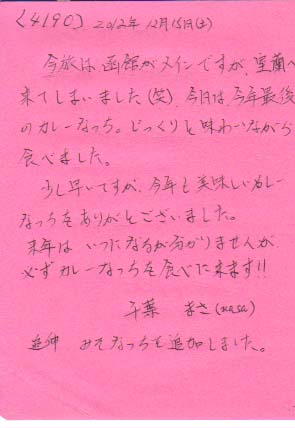 〈4190〉 2012年12月15日(土)
今旅は函館がメインですが、室蘭へ
来てしまいました(笑)。今日は、今年最後
のカレーなっち。じっくりと味わいながら
食べました。
少し早いですが、今年も美味しいカレー
なっちをありがとうございました。
来年は いつになるか分かりませんが
必ずカレーなっちを食べに来ます!!
千葉 まさ(masa)
追伸 みそなっちも追加しました。